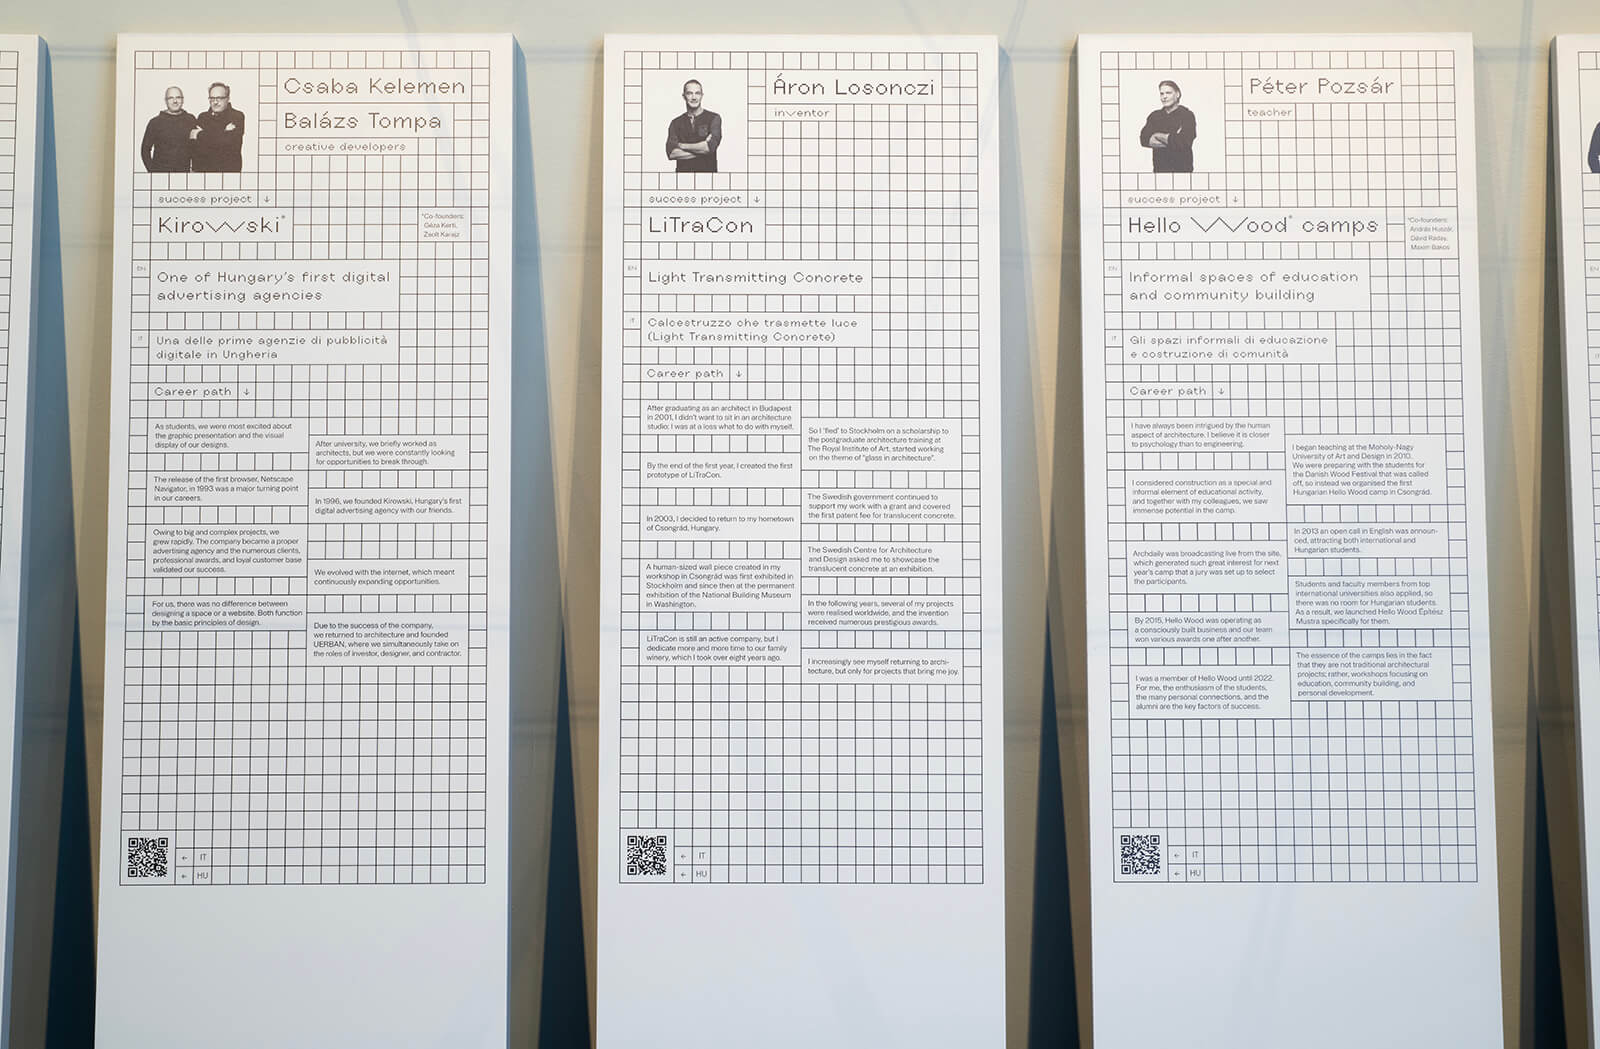 Csaba Kelemen
Balázs Tompa
creative developers
success project ↓
Kirowski*
*Co-founders:
Géza Kerti,
Zsolt Karajz
EN
One of Hungary's first digital
advertising agencies
IT
Una delle prime agenzie di pubblicità
digitale in Ungheria
Career path ↓
As students, we were most excited about
the graphic presentation and the visual
display of our designs.
After university, we briefly worked as
architects, but we were constantly looking
for opportunities to break through.
The release of the first browser, Netscape
Navigator, in 1993 was a major turning point
in our careers.
In 1996, we founded Kirowski, Hungary's first
digital advertising agency with our friends.
Owing to big and complex projects, we
grew rapidly. The company became a proper
advertising agency and the numerous clients,
professional awards, and loyal customer base
validated our success.
We evolved with the internet, which meant
continuously expanding opportunities.
For us, there was no difference between
designing a space or a website. Both function
by the basic principles of design.
Due to the success of the company,
we returned to architecture and founded
UERBAN, where we simultaneously take on
the roles of investor, designer, and contractor.
← IT
← HU
Áron Losonczi
inventor
success project ↓
LiTraCon
EN
Light Transmitting Concrete
IT
Calcestruzzo che trasmette luce
(Light Transmitting Concrete)
Career path ↓
After graduating as an architect in Budapest
in 2001, I didn't want to sit in an architecture
studio; I was at a loss what to do with myself.
So I 'fled' to Stockholm on a scholarship to
the postgraduate architecture training at
The Royal Institute of Art, started working
on the theme of "glass in architecture".
By the end of the first year, I created the first
prototype of LiTraCon.
The Swedish government continued to
support my work with a grant and covered
the first patent fee for translucent concrete.
In 2003, I decided to return to my hometown
of Csongrád, Hungary.
The Swedish Centre for Architecture
and Design asked me to showcase the
translucent concrete at an exhibition.
A human-sized wall piece created in my
workshop in Csongrád was first exhibited in
Stockholm and since then at the permanent
exhibition of the National Building Museum
in Washington.
In the following years, several of my projects
were realised worldwide, and the invention
received numerous prestigious awards.
LiTraCon is still an active company, but I
dedicate more and more time to our family
winery, which I took over eight years ago.
I increasingly see myself returning to archi-
tecture, but only for projects that bring me joy.
← IT
← HU
Péter Pozsár
teacher
success project ↓
Hello Wood* camps
*Co-founders:
András Huszár,
Dávid Ráday,
Maxim Bakos
EN
Informal spaces of education
and community building
IT
Gli spazi informali di educazione
e costruzione di comunità
Career path ↓
I have always been intrigued by the human
aspect of architecture. I believe it is closer
to psychology than to engineering.
I began teaching at the Moholy-Nagy
University of Art and Design in 2010.
We were preparing with the students for
the Danish Wood Festival that was called
off, so instead we organised the first
Hungarian Hello Wood camp in Csongrád.
I considered construction as a special and
informal element of educational activity,
and together with my colleagues, we saw
immense potential in the camp.
In 2013 an open call in English was announ-
ced, attracting both international and
Hungarian students.
Archdaily was broadcasting live from the site,
which generated such great interest for next
year's camp that a jury was set up to select
the participants.
Students and faculty members from top
international universities also applied, so
there was no room for Hungarian students.
As a result, we launched Hello Wood Építész
Mustra specifically for them.
By 2015, Hello Wood was operating as
a consciously built business and our team
won various awards one after another.
The essence of the camps lies in the fact
that they are not traditional architectural
projects; rather, workshops focusing on
education, community building, and
personal development.
I was a member of Hello Wood until 2022.
For me, the enthusiasm of the students,
the many personal connections, and the
alumni are the key factors of success.
← IT
← HU